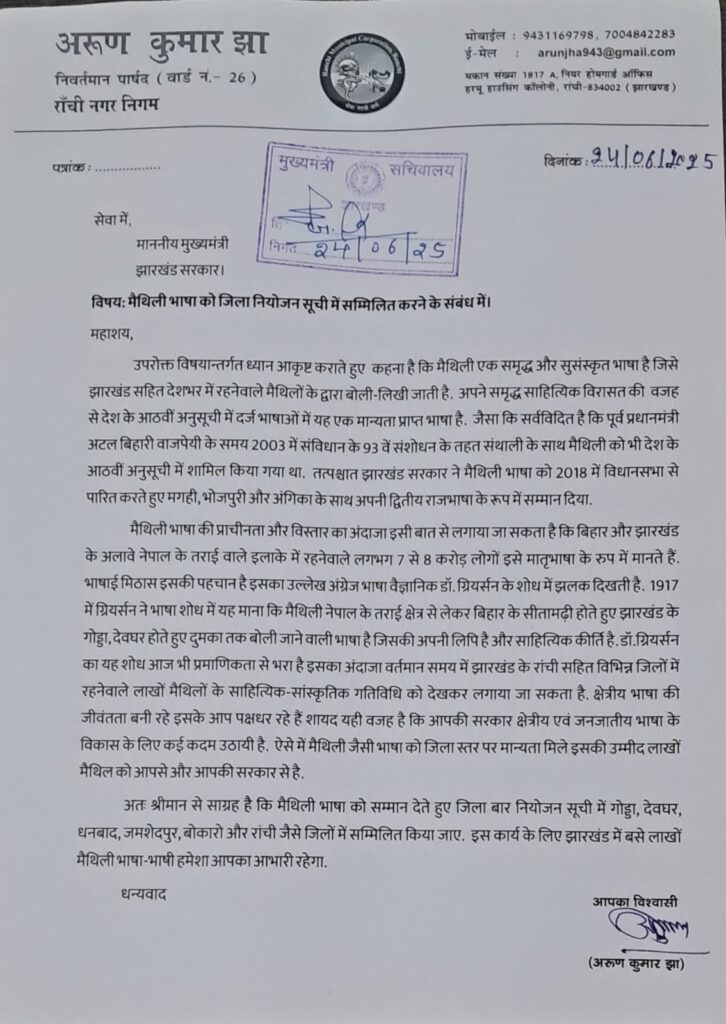 अरूण कुमार झा
निवर्तमान पार्षद ( वार्ड नं.- 26 )
राँची नगर निगम
Ranchi Municipal Corporation, Ranchi
मोबाईल : 9431169798, 7004842283
ई-मेल : arunjha943@gmail.com
मकान संख्या 1817 A, नियर होमगार्ड ऑफिस
हरमू हाउसिंग कॉलोनी, रांची-834002 ( झारखण्ड )
पत्रांक : ..................
मुख्यमंत्री सचिवालय
झारखण्ड
निर्गत 24/06/25
दिनांक : 24/06/2025
सेवा में,
माननीय मुख्यमंत्री
झारखंड सरकार।
विषय: मैथिली भाषा को जिला नियोजन सूची में सम्मिलित करने के संबंध में।
महाशय,
उपरोक्त विषयान्तर्गत ध्यान आकृष्ट कराते हुए कहना है कि मैथिली एक समृद्ध और सुसंस्कृत भाषा है जिसे
झारखंड सहित देशभर में रहनेवाले मैथिलों के द्वारा बोली-लिखी जाती है. अपने समृद्ध साहित्यिक विरासत की वजह
से देश के आठवीं अनुसूची में दर्ज भाषाओं में यह एक मान्यता प्राप्त भाषा है. जैसा कि सर्वविदित है कि पूर्व प्रधानमंत्री
अटल बिहारी वाजपेयी के समय 2003 में संविधान के 93 वें संशोधन के तहत संथाली के साथ मैथिली को भी देश के
आठवीं अनुसूची में शामिल किया गया था. तत्पश्चात झारखंड सरकार ने मैथिली भाषा को 2018 में विधानसभा से
पारित करते हुए मगही, भोजपुरी और अंगिका के साथ अपनी द्वितीय राजभाषा के रूप में सम्मान दिया.
मैथिली भाषा की प्राचीनता और विस्तार का अंदाजा इसी बात से लगाया जा सकता है कि बिहार और झारखंड
के अलावे नेपाल के तराई वाले इलाके में रहनेवाले लगभग 7 से 8 करोड़ लोगों इसे मातृभाषा के रुप में मानते हैं.
भाषाई मिठास इसकी पहचान है इसका उल्लेख अंग्रेज भाषा वैज्ञानिक डॉ. ग्रियर्सन के शोध में झलक दिखती है. 1917
में ग्रियर्सन ने भाषा शोध में यह माना कि मैथिली नेपाल के तराई क्षेत्र से लेकर बिहार के सीतामढ़ी होते हुए झारखंड के
गोड्डा, देवघर होते हुए दुमका तक बोली जाने वाली भाषा है जिसकी अपनी लिपि है और साहित्यिक कीर्ति है. डॉ.ग्रियर्सन
का यह शोध आज भी प्रमाणिकता से भरा है इसका अंदाजा वर्तमान समय में झारखंड के रांची सहित विभिन्न जिलों में
रहनेवाले लाखों मैथिलों के साहित्यिक-सांस्कृतिक गतिविधि को देखकर लगाया जा सकता है. क्षेत्रीय भाषा की
जीवंतता बनी रहे इसके आप पक्षधर रहे हैं शायद यही वजह है कि आपकी सरकार क्षेत्रीय एवं जनजातीय भाषा के
विकास के लिए कई कदम उठायी है. ऐसे में मैथिली जैसी भाषा को जिला स्तर पर मान्यता मिले इसकी उम्मीद लाखों
मैथिल को आपसे और आपकी सरकार से है.
अतः श्रीमान से साग्रह है कि मैथिली भाषा को सम्मान देते हुए जिला बार नियोजन सूची में गोड्डा, देवघर,
धनबाद, जमशेदपुर, बोकारो और रांची जैसे जिलों में सम्मिलित किया जाए. इस कार्य के लिए झारखंड में बसे लाखों
मैथिली भाषा-भाषी हमेशा आपका आभारी रहेगा.
धन्यवाद
आपका विश्वासी
(अरूण कुमार झा)